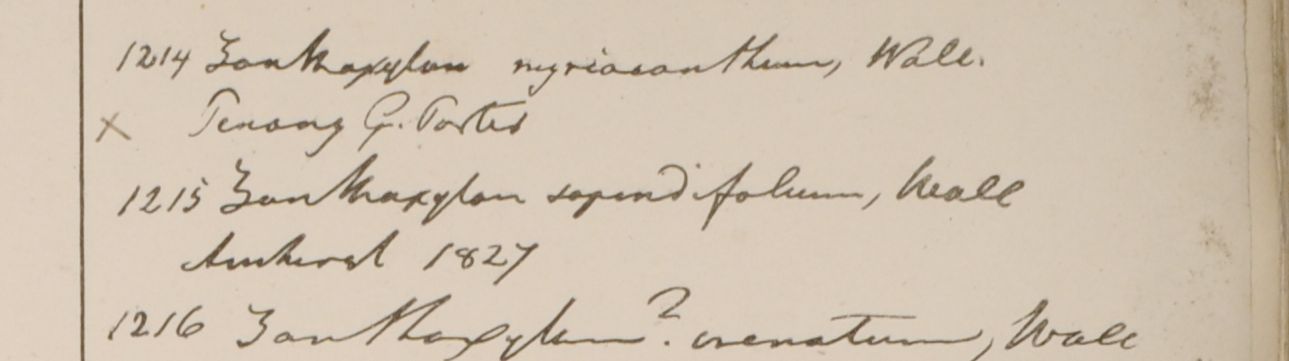 1214 Zanthoxylon myriacanthum, Wall.
x Penang G. Porter
1215 Zanthoxylon sapindifolium, Wall
Amherst 1827
1216 Zanthoxylum? crenatum, Wall